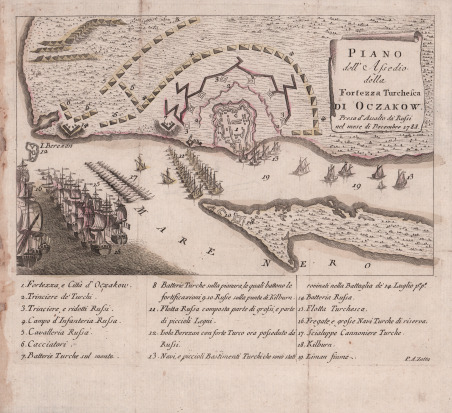 PIANO
dell' Assedio
della
Fortezza Turchesca
DI OCZAKOW,
Presa d'Assalto da' Russi
nel mese di Decembre 1788
I. Berezan
MARE NERO
1. Fortezza, e Città d'Oczakow.
2. Trinciere de' Turchi.
3. Trinciere, e ridotti Russi.
4. Campo d'Infanteria Russa.
5. Cavalleria Russa.
6. Cacciatori.
7. Batterie Turche sul monte.
8 Batterie Turche sulla pianura, le quali battono le
fortificazioni 9.10 Russe sulla punta di Kilburn.
11. Flotta Russa composta parte di grossi, e parte
di piccioli Legni.
12. Isola Berezan con forte Turco ora posseduto da
Russi.
13. Navi, e piccioli Bastimenti Turchi che sono stati
rovinati nella Battaglia de' 29 Luglio
14. Batteria Russa.
15. Flotta Turchesca.
16. Fregate, e grosse Navi Turche di riserva.
17. Scialuppe Cannoniere Turche.
18. Kilburn.
19. Liman fiume.
P. A. Zatta